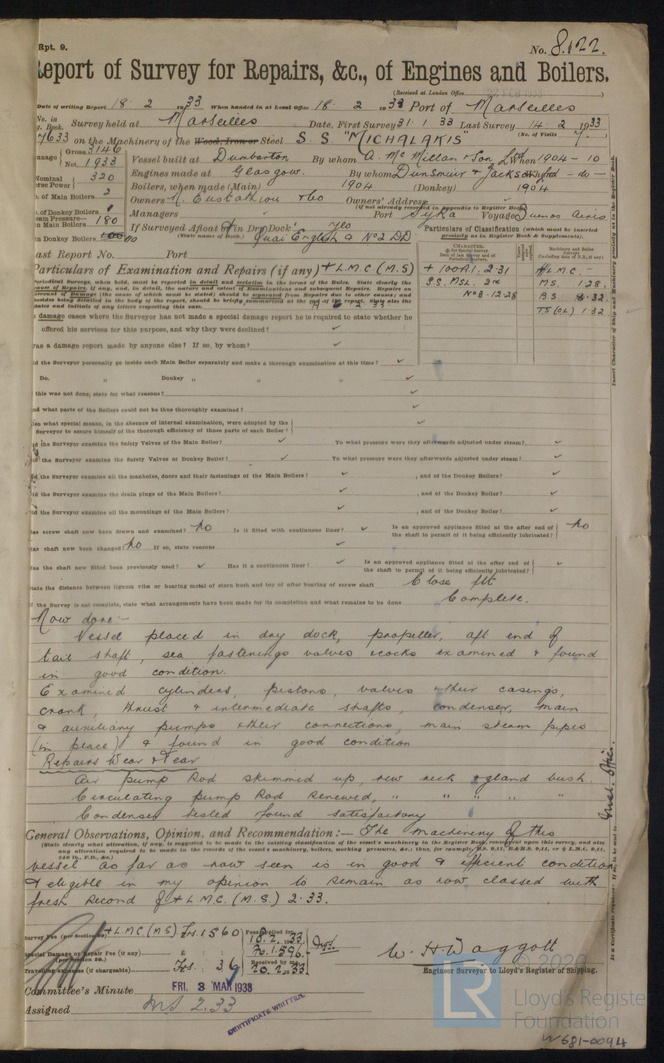 Rpt. 9.
No. 8122.
Report of Survey for Repairs, &c., of Engines and Boilers.
(Received at London Office
Date of writing Report 18 . 2 1933 When handed in at Local Office 18 . 2 1933 Port of Marseilles
No. in Survey held at Marseilles Date, First Survey 31 . 1 33 Last Survey 14 . 2 1933
Reg. Book. (No. of Visits 7.)
on the Machinery of the Wood, Iron or Steel S. S. "MICHALAKIS"
Gross 3146
Net 1933
Vessel built at Dumbarton By whom A. McMillan & Son Ltd When 1904 - 10
Nominal Horse Power 320
Engines made at Glasgow. By whom Dunsmuir & Jackson When - do -
No. of Main Boilers 2 Boilers, when made (Main) 1904 (Donkey) 1904
No. of Donkey Boilers Owners N. Eustathiou & Co Owners' Address
(if not already recorded in Appendix to Register Book.)
Steam Pressure
in Main Boilers 180 Managers Port Syra Voyage Buenos Aires
in Donkey Boilers If Surveyed Afloat or in Dry Dock Yes
(State name of Dock.) Quai English & No 2 DD
Particulars of Classification (which must be inserted precisely as in Register Book & Supplements).
Last Report No. Port
Particulars of Examination and Repairs (if any) + L.M.C (M.S)
+ 100A1. 2.31
S.S. MSL. 2nd
No 3 - 12.28
+ L.M.C. -
M.S. 1.28.
B.S. 8.32.
T.S (CL) 1.32
In damage cases where the Surveyor has not made a special damage report he is required to state whether he
offered his services for this purpose, and why they were declined?
Was a damage report made by anyone else? If so, by whom?
Did the Surveyor personally go inside each Main Boiler separately and make a thorough examination at this time?
Do. " Donkey " "
If this was not done, state for what reasons?
And what parts of the Boilers could not be thus thoroughly examined?
Also what special means, in the absence of internal examination, were adopted by the
Surveyor to assure himself of the thorough efficiency of those parts of each Boiler?
Did the Surveyor examine the Safety Valves of the Main Boiler? To what pressure were they afterwards adjusted under steam?
Did the Surveyor examine the Safety Valves of Donkey Boiler? To what pressure were they afterwards adjusted under steam?
Did the Surveyor examine all the manholes, doors and their fastenings of the Main Boilers? , and of the Donkey Boiler?
Did the Surveyor examine the drain plugs of the Main Boilers? , and of the Donkey Boiler?
Did the Surveyor examine all the mountings of the Main Boilers? , and of the Donkey Boiler?
Has screw shaft now been drawn and examined? No Is it fitted with continuous liner? Is an approved appliance fitted at the after end of
the shaft to permit of it being efficiently lubricated? No
Has shaft now been changed? No If so, state reasons
Has the shaft now fitted been previously used? Has it a continuous liner? Is an approved appliance fitted at the after end of
the shaft to permit of it being efficiently lubricated?
State the distance between lignum vitæ or bearing metal of stern bush and top of after bearing of screw shaft Close fit
If the Survey is not complete, state what arrangements have been made for its completion and what remains to be done Complete.
Now done:-
Vessel placed in dry dock, propeller, aft end of
tail shaft, sea fastenings valves & cocks examined & found
in good condition.
Examined cylinders, pistons, valves & their casings,
crank, thrust & intermediate shafts, condenser, main
& auxiliary pumps & their connections, main steam pipes
(in place) & found in good condition
Repairs Wear & Tear
Air pump Rod skimmed up, new neck & gland bush.
Circulating pump Rod Renewed, " " " " "
Condenser tested found satisfactory
General Observations, Opinion, and Recommendation:— The machinery of this
vessel as far as now seen is in good & efficient condition
& eligible in my opinion to remain as now classed with
fresh Record of + L.M.C. (M.S.) 2.33.
Survey Fee + L.M.C (M.S) Frs. 1560
Special Damage or Repair Fee (if any)
Travelling expenses (if chargeable) Frs. 36
Fees applied for
18.2.1933.
Received by me,
20.2.1933.
W. H. Waggott
Engineer Surveyor to Lloyd's Register of Shipping.
Committee's Minute FRI. 3 MAR 1933
Assigned MS 2.33
CERTIFICATE WRITTEN.
© 2020
Lloyd's Register
Foundation
LR
W681-0094